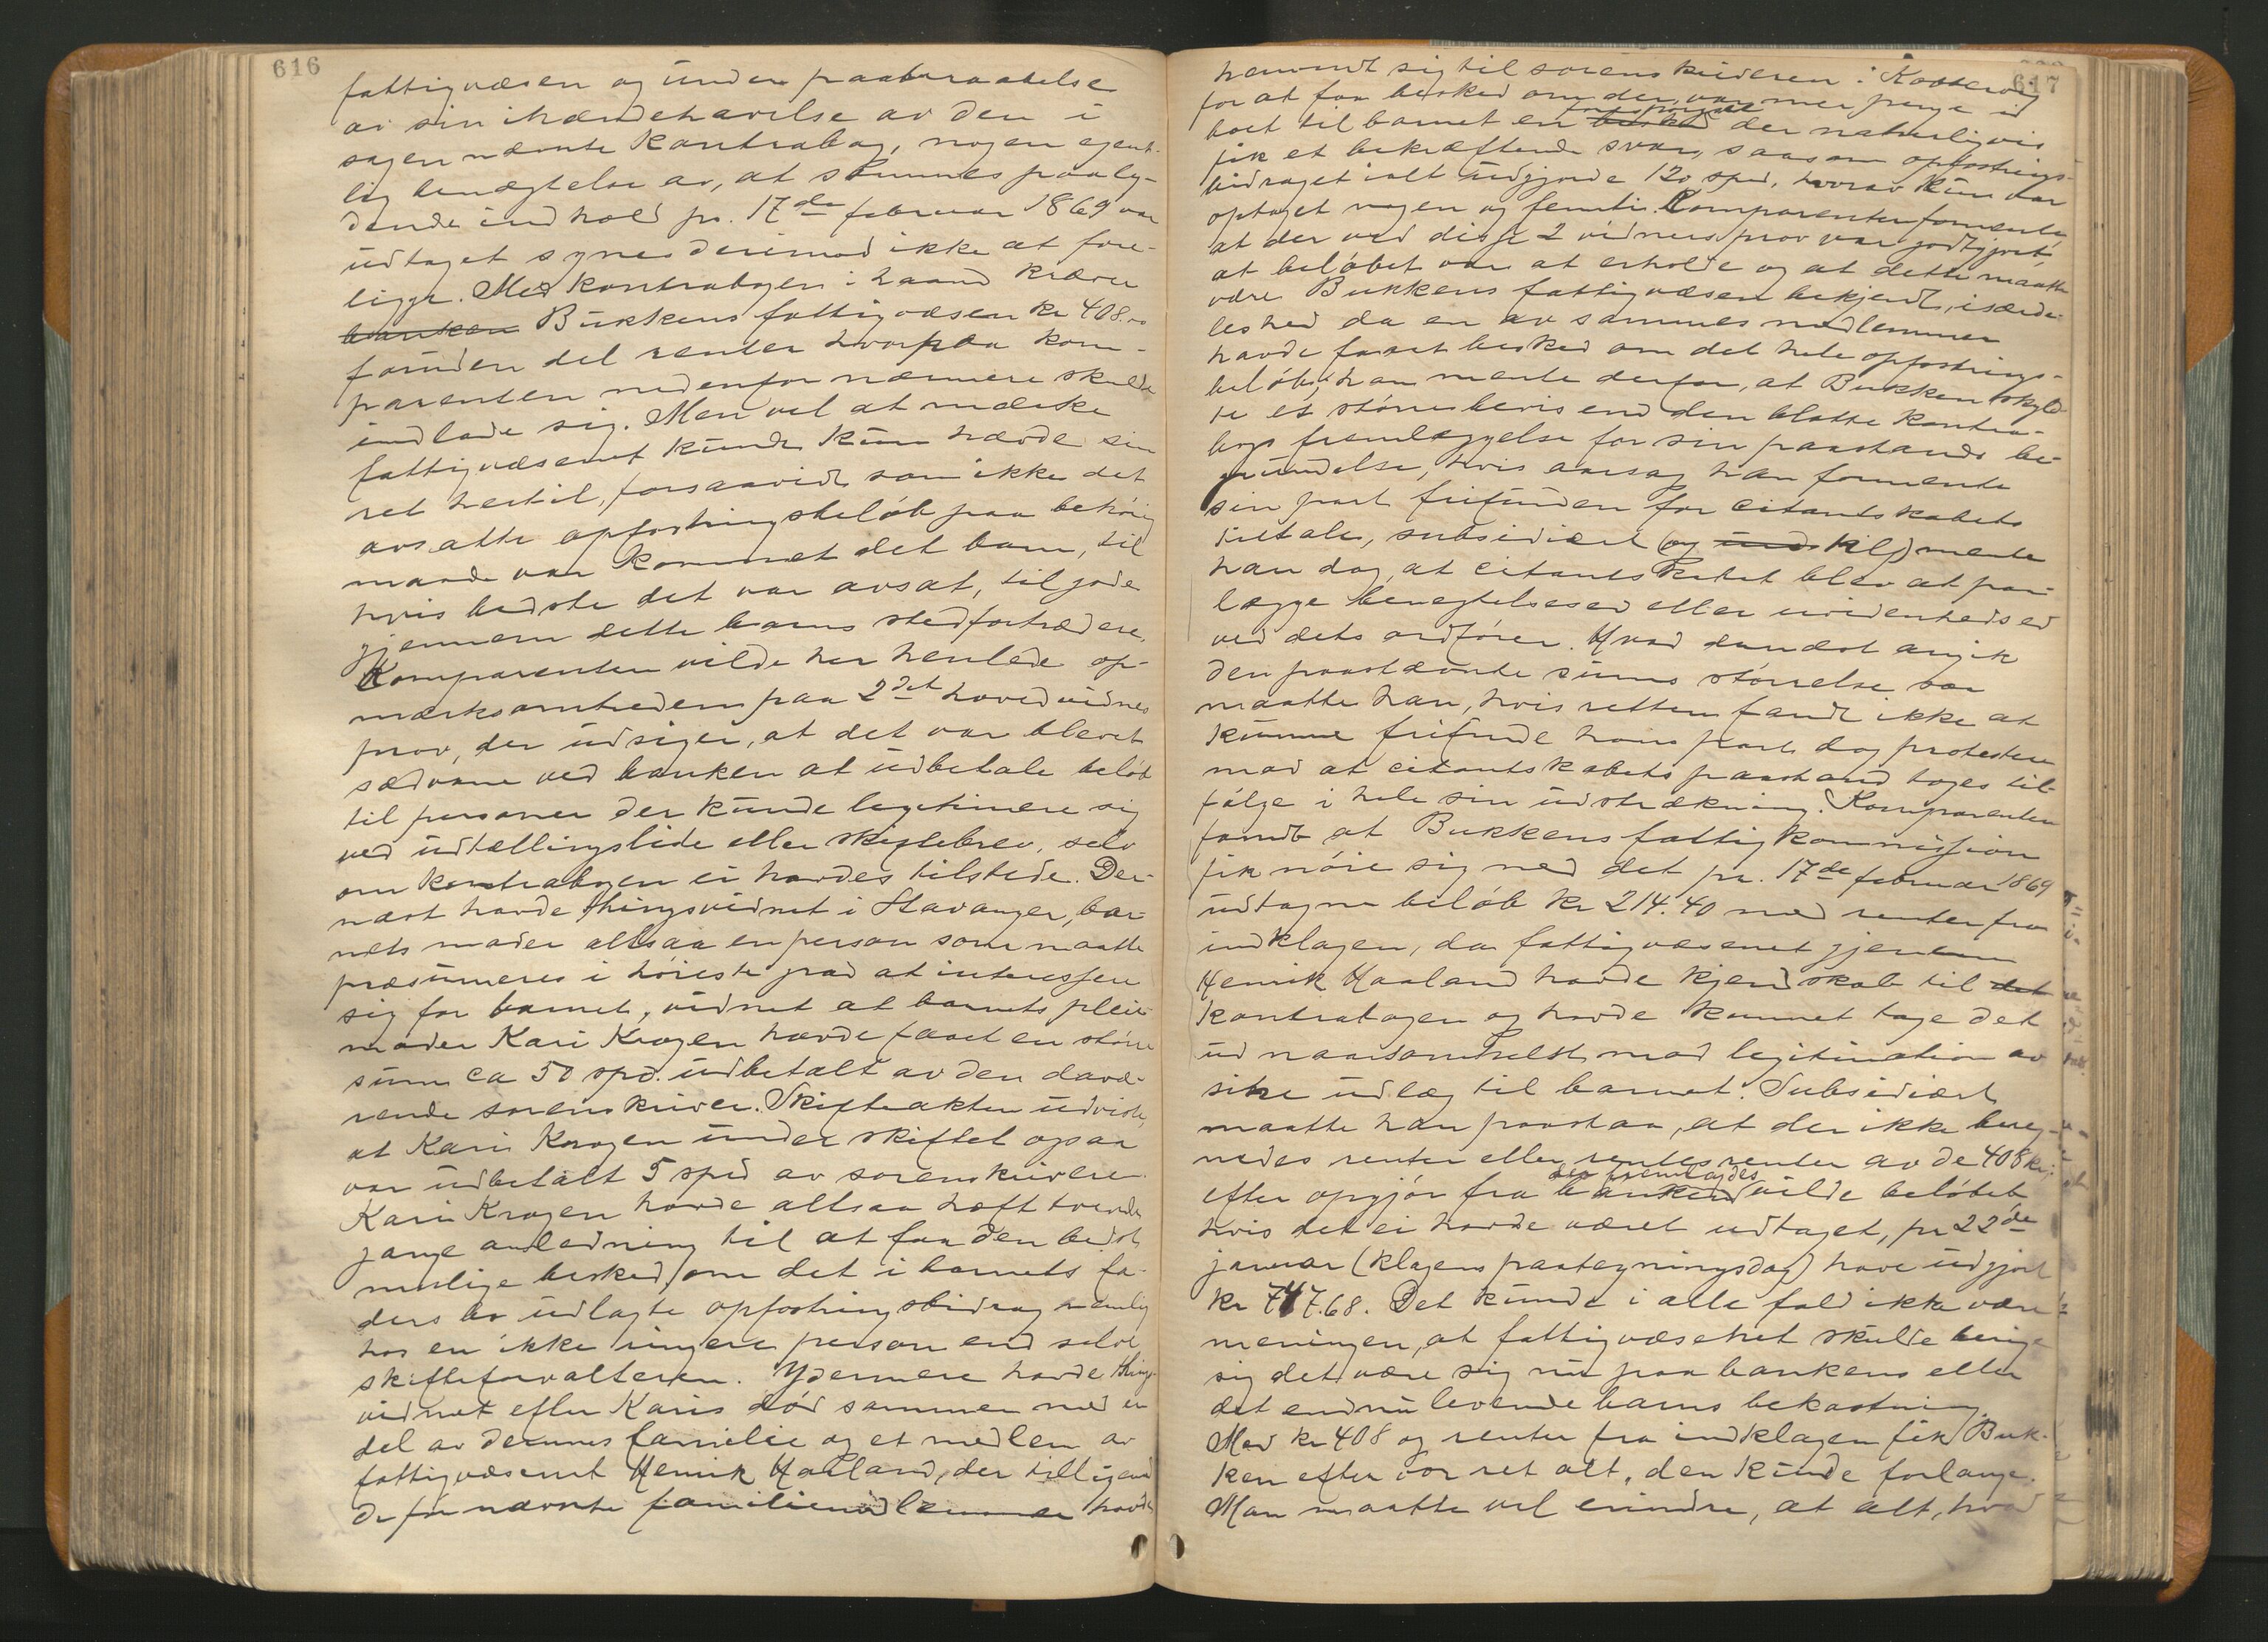 616
fattigvæsen og under paaberaabelse
av sin ihændehavelse av den i
sagen nævnte kontrabog, nogen egent-
lig benægtelse av, at sammes paaly-
dende indhold pr. 17de februar 1869 var
udtaget synes derimod ikke at fore-
ligge. Med kontrabogen i haand kræver
banken Bukkens fattigvæsen kr 408.00
foruden del renter hvorpaa kom-
parenten nedenfor nærmere skulde
indlade sig. Men vel at mærke
fattigvæsenet kunde kun hævde sin
ret hertil, forsaavidt som ikke det
avsatte opfostringsbeløb paa behørig
maade var kommet det barn, til
hvis bedste det var avsat, tilgode
gjennem dette barns stedfortrædere.
Komparenten vilde her henlede op-
mærksomheden paa 2det hovedvidnes
prov, der udsiger, at det var blevet
sædvane ved banken at udbetale beløb
til personer der kunde legitimere sig
ved udtællingsliste eller skiftebrev, selv
om kontrabogen ei havdes tilstede. Der-
næst havde thingsvidnet i Stavanger, bar-
nets moder altsaa en person som maatte
præsumeres i høieste grad at interessere
sig for barnet, vidnet at barnets pleie-
moder Kari Krogen havde faaet en større
sum ca 50 spd. udbetalt av den davæ-
rende sorenskriver. Skifteakten udviste,
at Kari Krogen under skiftet ogsaa
var udbetalt 5 spd av sorenskriveren.
Kari Krogen havde altsaa hæft tvende
gange anledning til at faa den bedst
mulige besked om det i barnets fa-
ders bo udlagte opfostringsbidrag nemlig
hos en ikke ringere person end selve
skifteforvalteren. Ydermere havde thing-
vidnet efter Karis død sammen med en
del av dennes familie og et medlem av
fattigvæsenet Henrik Haaland, der tilligemed
de før nævnte familiemedlemmer havde
617
henvendt sig til sorenskriveren i
for at faa besked om der var mer penge i
boet til barnet en besked forespørgsel der naturligvis
fik et bekræftende svar, saasom opfostrings-
bidraget ialt udgjorde 120 spd, hvorav kun var
optaget nogen og femti. Komparenten formente
at der ved disse 2 vidners prov var godtgjort
at beløbet var at erholde og at dette maatte
være Bukkens fattigvæsen bekjendt, isærde-
leshed da en av sammes medlemmer
havde faaet besked om det hele opfostrings-
beløb; han mente derfor, at Bukken skyld-
te et større bevis end den blotte kontra-
bogs fremlæggelse for sin paastands be-
grundelse, hvis aarsag han formente
sin part frifunden for citantskabets
tiltale, subsidiært (og til) mente
han dog, at citantskabet blev at paa-
lægge benegtelsesed eller uvidenhedsed
ved dets ordfører. Hvad dernæst angik
den paastævnte sums størrelse var
maatte han, hvis retten fandt ikke at
kunne frifinde hans part dog protestere
mod at citantskabets paastand toges til-
følge i hele sin udstrækning. Komparenten
fandt at Bukkens fattigkommission
fik nøie sig med det pr. 17de februar 1869
udtagne beløb kr 214.40 med renter fra
indklagen, da fattigvæsenet gjennem
Henrik Haaland havde kjendskab til det
kontrabogen og havde kunnet tage det
ud naarsomhelst mod legitimation av
sine udlæg til barnet. Subsidiært
maatte han paastaa, at der ikke bereg-
nedes renter eller rentesrenter av de 408 kr;
efter opgjør fra banken der fremlagdes vilde beløbet
hvis det ei havde været udtaget, pr 22de
januar (klagens paategningsdag) have udgjort
kr 747.68. Det kunde i alle fald ikke være
meningen, at fattigvæsenet skulde berige
sig det være sig nu paa bankens eller
det endnu levende barns bekostning.
Med kr 408 og renter fra indklagen fik Buk-
ken efter vor ret alt, den kunde forlange.
Man maatte vel erindre, at alt, hvad